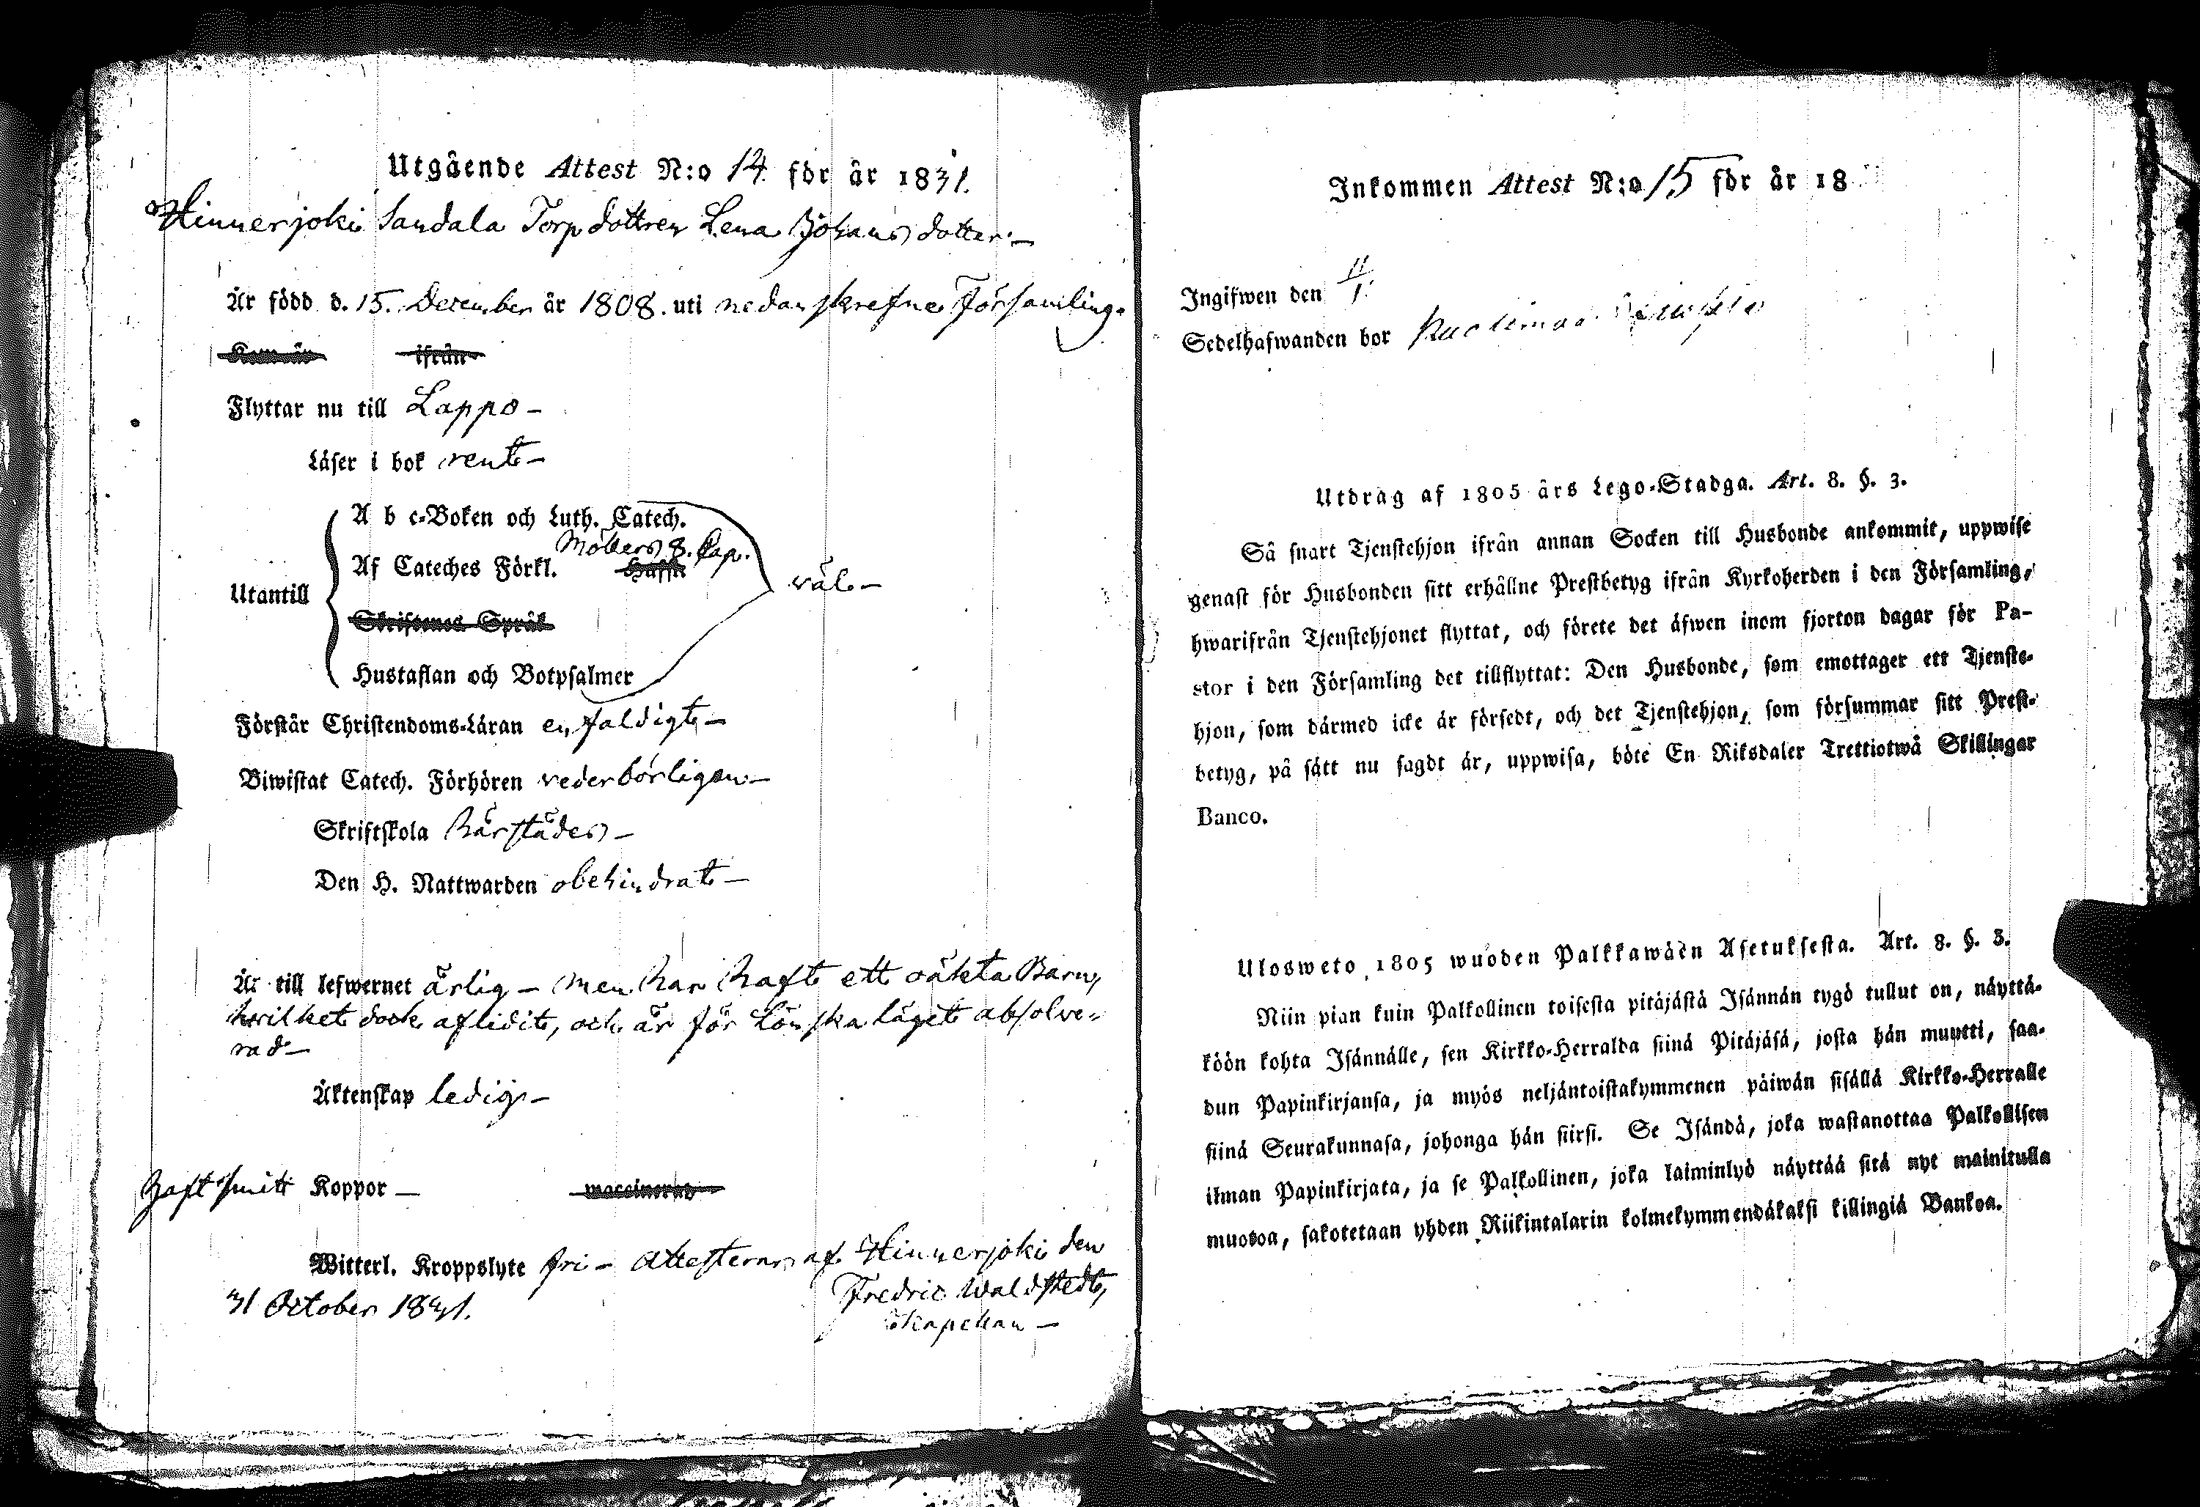 Utgående Attest N:o 14 för år 1831.
Hinnerjoki Sandala Torpdottren Lena Johans dotter.—
Är född d. 15. December år 1808. uti nedanskrefne Församling.
Kom år ifrån
Flyttar nu till Lappo –
Läser i bok rent –
A b c-Boken och Luth. Catech.
Möllers 8. Cap.
Af Cateches Förkl.
Utantill väl –
Skriftenes Språk
Hustaflan och Botpsalmer
Förstår Christendoms-Läran enfaldigt –
Biwistat Catech. Förhören vederbörligen –
Skriftskola härstädes –
Den H. Nattwarden obehindrat –
Är till lefwernet ärlig – men har haft ett oäkta Barn,
hvilket dock aflidit, och är för Lönskaläget absolve-
rad –
Äktenskap ledig –
haft smitt Koppor – waccinerad
Witterl. Kroppslyte fri – Attesterar af Hinnerjoki den
31 October 1831. Fredric Waldstedt,
Kapellan –
Inkommen Attest N:o 15 för år 18
Ingifwen den 11/1.
Sedelhafwanden bor
Utdrag af 1805 års Lego-Stadga. Art. 8. §. 3.
Så snart Tjenstehjon ifrån annan Socken till Husbonde ankommit, uppwise
genast för Husbonden sitt erhållne Prestbetyg ifrån Kyrkoherden i den Församling,
hwarifrån Tjenstehjonet flyttat, och förete det äfwen inom fjorton dagar för Pa-
stor i den Församling det tillflyttat: Den Husbonde, som emottager ett Tjenste-
hjon, som därmed icke är försedt, och det Tjenstehjon, som försummar sitt Prest-
betyg, på sätt nu sagdt är, uppwisa, böte En Riksdaler Trettiotwå Skillingar
Banco.
Ulosweto 1805 wuoden Palkkawäen Asetuksesta. Art. 8. §. 3.
Niin pian kuin Palkollinen toisesta pitäjästä Isännän tygö tullut on, näyttä-
köön kohta Isännälle, sen Kirkko-Herralda siinä Pitäjäsä, josta hän muutti, saa-
dun Papinkirjansa, ja myös neljäntoistakymmenen päiwän sisällä Kirkko-Herralle
siinä Seurakunnasa, johonga hän siirsi. Se Isändä, joka wastanottaa Palkollisen
ilman Papinkirjata, ja se Palkollinen, joka laiminlyö näyttää sitä nyt mainitulla
muotoa, sakotetaan yhden Riikintalarin kolmekymmendäkaksi killingiä Bankoa.